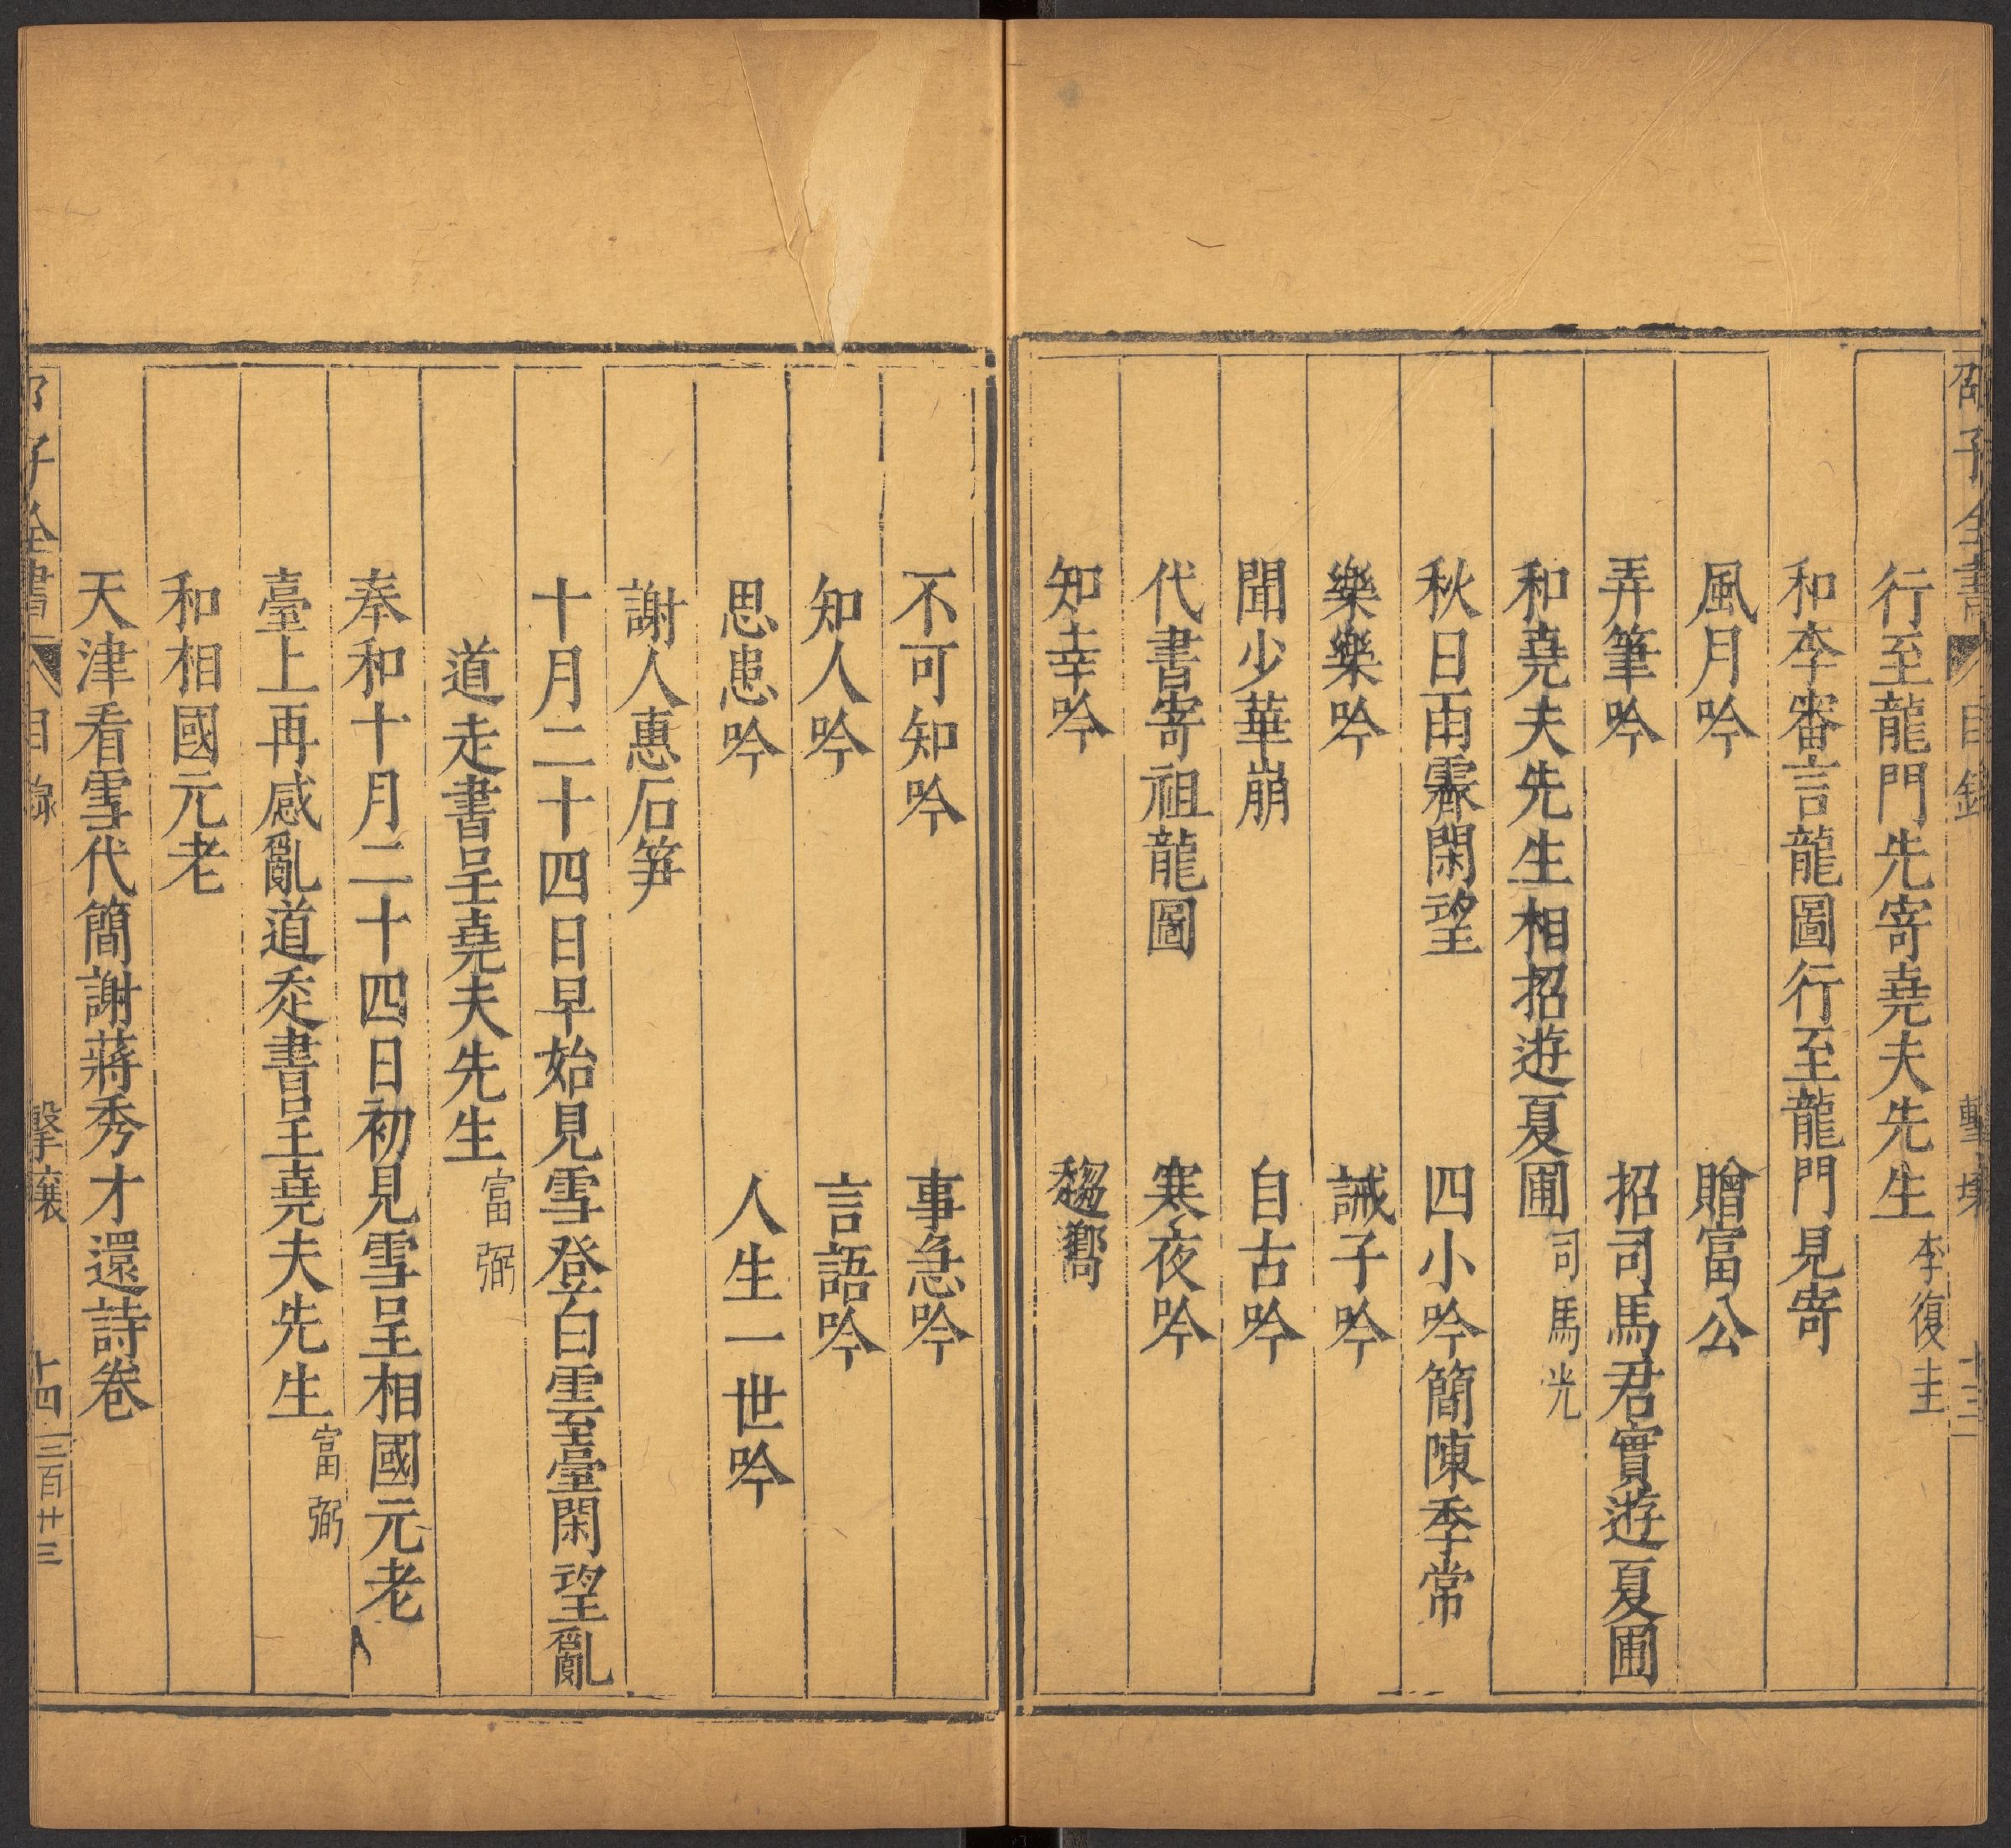 邵子全書 目錄 擊壤 十三
行至龍門先寄堯夫先生 李復圭
和李審言龍圖行至龍門見寄
風月吟 贈富公
弄筆吟 招司馬君實遊夏圃
和堯夫先生相招遊夏圃 司馬光
秋日雨霽閑望 四小吟簡陳季常
樂樂吟 誡子吟
聞少華崩 自古吟
代書寄祖龍圖 寒夜吟
知幸吟
不可知吟 事急吟
知人吟 言語吟
思患吟 人生一世吟
謝人惠石笋
十月二十四日早始見雪登白雲臺閑望亂
道走書呈堯夫先生 富弼
奉和十月二十四日初見雪呈相國元老
臺上再感亂道走書呈堯夫先生 富弼
和相國元老
天津看雪代簡謝蔣秀才還詩卷
邵子全書 目錄 擊壤 十四 三百廿三